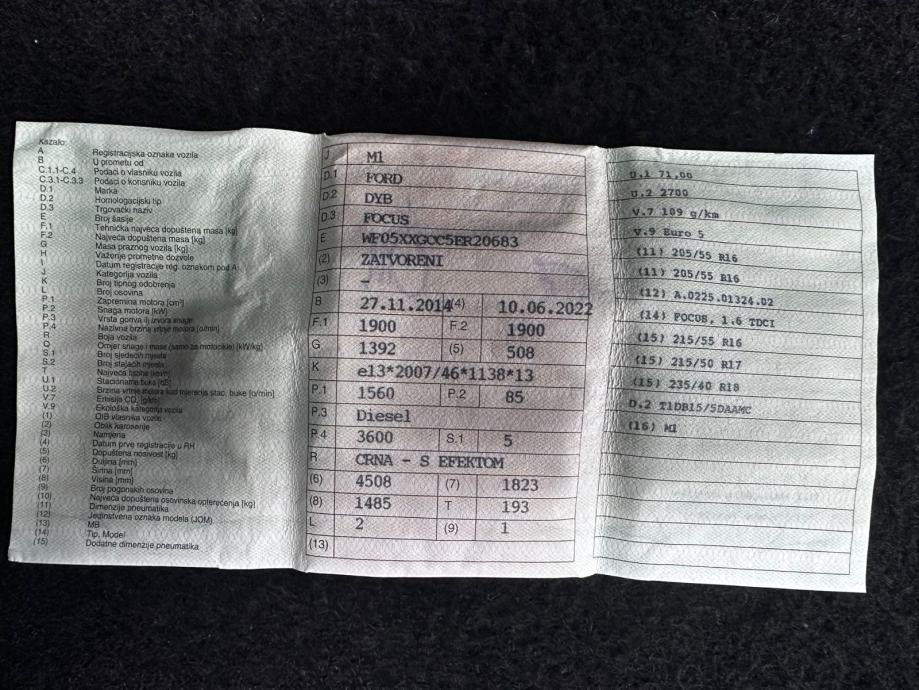 Kazalo:
A Registracijska oznaka vozila
B U prometu od
C.1.1-C.4 Podaci o vlasniku vozila
C.3.1-C.3.3 Podaci o korisniku vozila
D.1 Marka
D.2 Homologacijski tip
D.3 Trgovački naziv
E Broj šasije
F.1 Tehnička najveća dopuštena masa [kg]
F.2 Najveća dopuštena masa [kg]
G Masa praznog vozila [kg]
H Važenje prometne dozvole
I Datum registracije reg. oznakom pod A
J Kategorija vozila
K Broj tipnog odobrenja
L Broj osovina
P.1 Zapremina motora [cm³]
P.2 Snaga motora [kW]
P.3 Vrsta goriva ili izvora snage
P.4 Nazivna brzina vrtnje motora [o/min]
R Boja vozila
Q Omjer snage i mase (samo za motocikle) [kW/kg]
S.1 Broj sjedećih mjesta
S.2 Broj stajaćih mjesta
T Najveća brzina [km/h]
U.1 Stacionarna buka [dB]
U.2 Brzina vrtnje motora kod mjerenja stac. buke [o/min]
V.7 Emisija CO₂ [g/km]
V.9 Ekološka kategorija vozila
(1) OIB vlasnika vozila
(2) Oblik karoserije
(3) Namjena
(4) Datum prve registracije u RH
(5) Dopuštena nosivost [kg]
(6) Duljina [mm]
(7) Širina [mm]
(8) Visina [mm]
(9) Broj pogonskih osovina
(10) Najveća dopuštena osovinska opterećenja [kg]
(11) Dimenzije pneumatika
(12) Jedinstvena oznaka modela (JOM)
(13) MB
(14) Tip, Model
(15) Dodatne dimenzije pneumatika
J M1
D.1 FORD
D.2 DYB
D.3 FOCUS
E WF05XXGCC5ER20683
(2) ZATVORENI
(3) -
B 27.11.2014 (4) 10.06.2022
F.1 1900 F.2 1900
G 1392 (5) 508
K e13*2007/46*1138*13
P.1 1560 P.2 85
P.3 Diesel
P.4 3600 S.1 5
R CRNA - S EFEKTOM
(6) 4508 (7) 1823
(8) 1485 T 193
L 2 (9) 1
(13)
U.1 71,00
U.2 2700
V.7 109 g/km
V.9 Euro 5
(11) 205/55 R16
(11) 205/55 R16
(12) A.0225.01324.02
(14) FOCUS, 1.6 TDCI
(15) 215/55 R16
(15) 215/50 R17
(15) 235/40 R18
D.2 T1DB15/5DAAMC
(16) M1